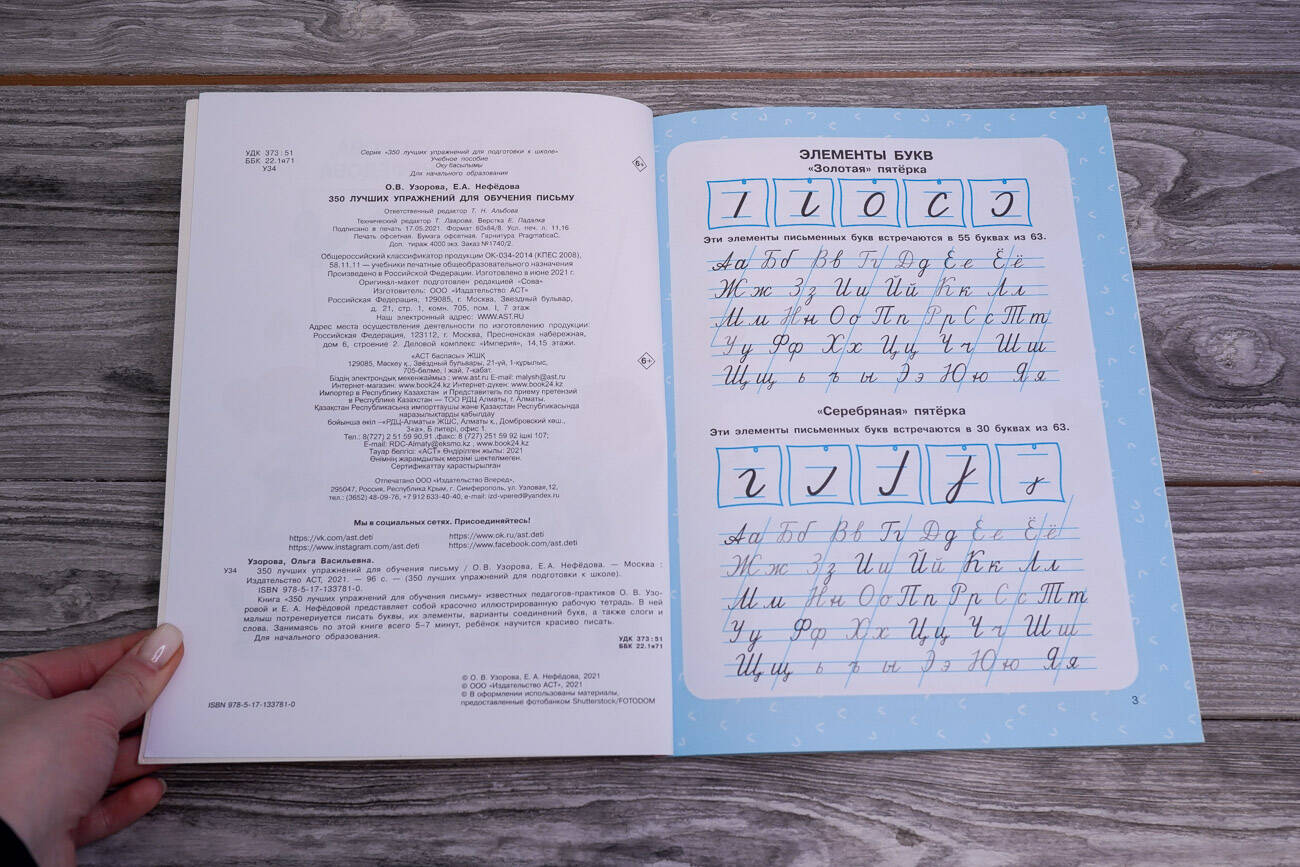 УДК 373:51
ББК 22.1я71
У34
Серия «350 лучших упражнений для подготовки к школе»
Учебное пособие
Оқу басылымы
Для начального образования
6+
О.В. Узорова, Е.А. Нефёдова
350 ЛУЧШИХ УПРАЖНЕНИЙ ДЛЯ ОБУЧЕНИЯ ПИСЬМУ
Ответственный редактор Т. Н. Альбова
Технический редактор Т. Лаврова. Верстка Е. Падалка
Подписано в печать 17.05.2021. Формат 60x84/8. Усл. печ. л. 11,16
Печать офсетная. Бумага офсетная. Гарнитура PragmaticaC.
Доп. тираж 4000 экз. Заказ №1740/2.
Общероссийский классификатор продукции ОК-034-2014 (КПЕС 2008),
58.11.11 — учебники печатные общеобразовательного назначения
Произведено в Российской Федерации. Изготовлено в июне 2021 г.
Оригинал-макет подготовлен редакцией «Сова»
Изготовитель: ООО «Издательство АСТ»
Российская Федерация, 129085, г. Москва, Звездный бульвар,
д. 21, стр. 1, комн. 705, пом. I, 7 этаж
Наш электронный адрес: WWW.AST.RU
Адрес места осуществления деятельности по изготовлению продукции:
Российская Федерация, 123112, г. Москва, Пресненская набережная,
дом 6, строение 2. Деловой комплекс «Империя», 14,15 этажи.
6+
«АСТ баспасы» ЖШҚ
129085, Мәскеу қ., Звёздный бульвары, 21-үй, 1-құрылыс,
705-бөлме, I жай, 7-қабат
Біздің электрондық мекенжаймыз : www.ast.ru E-mail: malysh@ast.ru
Интернет-магазин: www.book24.kz Интернет-дүкен: www.book24.kz
Импортер в Республику Казахстан и Представитель по приему претензий
в Республике Казахстан — ТОО РДЦ Алматы, г. Алматы.
Қазақстан Республикасына импорттаушы және Қазақстан Республикасында
наразылықтарды қабылдау
бойынша өкіл –«РДЦ-Алматы» ЖШС, Алматы қ., Домбровский көш.,
3«а», Б литері, офис 1.
Тел.: 8(727) 2 51 59 90,91 ,факс: 8 (727) 251 59 92 ішкі 107;
E-mail: RDC-Almaty@eksmo.kz , www.book24.kz
Тауар белгісі: «АСТ» Өндірілген жылы: 2021
Өнімнің жарамдылық мерзімі шектелмеген.
Сертификаттау қарастырылған
Отпечатано ООО «Издательство Вперед»,
295047, Россия, Республика Крым, г. Симферополь, ул. Узловая,12,
тел.: (3652) 48-09-76, +7 912 633-40-40, e-mail: izd-vpered@yandex.ru
Мы в социальных сетях. Присоединяйтесь!
https://vk.com/ast.deti https://www.ok.ru/ast.deti
https://www.instagram.com/ast.deti https://www.facebook.com/ast.deti
Узорова, Ольга Васильевна.
У34 350 лучших упражнений для обучения письму / О. В. Узорова, Е.А. Нефёдова. — Москва :
Издательство АСТ, 2021. — 96 с. — (350 лучших упражнений для подготовки к школе).
ISBN 978-5-17-133781-0.
Книга «350 лучших упражнений для обучения письму» известных педагогов-практиков О. В. Узо-
ровой и Е. А. Нефёдовой представляет собой красочно иллюстрированную рабочую тетрадь. В ней
малыш потренируется писать буквы, их элементы, варианты соединений букв, а также слоги и
слова. Занимаясь по этой книге всего 5–7 минут, ребёнок научится красиво писать.
Для начального образования.
УДК 373:51
ББК 22.1я71
© О. В. Узорова, Е. А. Нефёдова, 2021
© ООО «Издательство АСТ», 2021
© В оформлении использованы материалы,
предоставленные фотобанком Shutterstock/FOTODOM
ISBN 978-5-17-133781-0
ЭЛЕМЕНТЫ БУКВ
«Золотая» пятёрка
Эти элементы письменных букв встречаются в 55 буквах из 63.
Аа Бб Вв Гг Дд Ее Ёё
Жж Зз Ии Йй Кк Лл
Мм Нн Оо Пп Рр Сс Тт
Уу Фф Хх Цц Чч Шш
Щщ ь ъ ы Ээ Юю Яя
«Серебряная» пятёрка
Эти элементы письменных букв встречаются в 30 буквах из 63.
Аа Бб Вв Гг Дд Ее Ёё
Жж Зз Ии Йй Кк Лл
Мм Нн Оо Пп Рр Сс Тт
Уу Фф Хх Цц Чч Шш
Щщ ь ъ ы Ээ Юю Яя
3